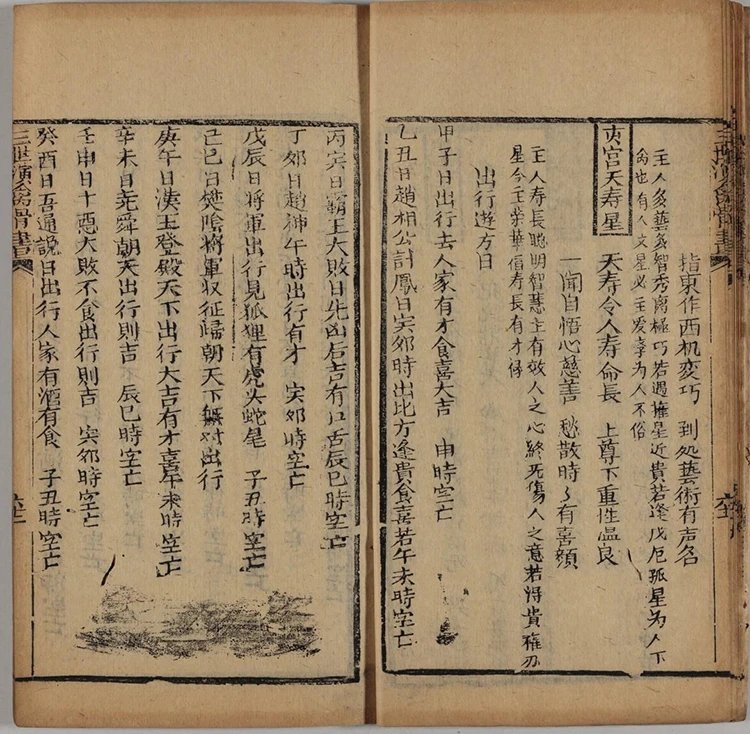 指東作西机変巧　到処藝術有声名
主人多藝多智秀离極巧若遇權星近貴若逢戊厄孤星为人下
命也有人文星必主爱李为人不俗
亥宫天寿星
天寿令人寿命長　上尊下重性温良
一闻自悟心慈善　愁散時〻有喜顔
主人寿長聪明智慧主有效人之心終无傷人之意若得貴權刃
星今主荣華倍寿長有才得
出行遊方日
甲子日出行去人家有才食喜大吉　申時空亡
乙丑日趙相公討鳳日寅夘時出比方逢貴食喜若午未時空亡
丙寅日霸王大敗日先凶后吉有口舌辰巳時空亡
丁夘日趙神午時出行有才　寅夘時空亡
戊辰日將軍出行見狐狸有虎头蛇尾　子丑時空亡
己巳日楚陰將軍収征歸朝天下無对出行
庚午日漢王登殿天下出行大吉有才喜午未時空亡
辛未日堯舜朝天出行則吉　辰巳時空亡
壬申日十惡大敗不食出行則吉　寅夘時空亡
癸酉日吾通説日出行人家有酒有食　子丑時空亡
三世演禽骨書